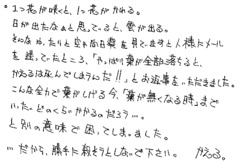 。1つ花が咲くと、1つ花がかれる。
日が出たなぁと思っていると、雲が出る。
そんな、ふたりと空の毎日を見てますと人様にメール
を送っていたところ、「やっぱり葉が全部落ちると、
かえるは死んでしまうんだ!!」とお返事をいただきました。
こんな全力で葉がしげる今、"葉が無くなる時"まで
いったいどのくらいかかるのだろう…。
と別の意味で困ってしまいました。
…だから、勝手に殺そうとしないで下さい。